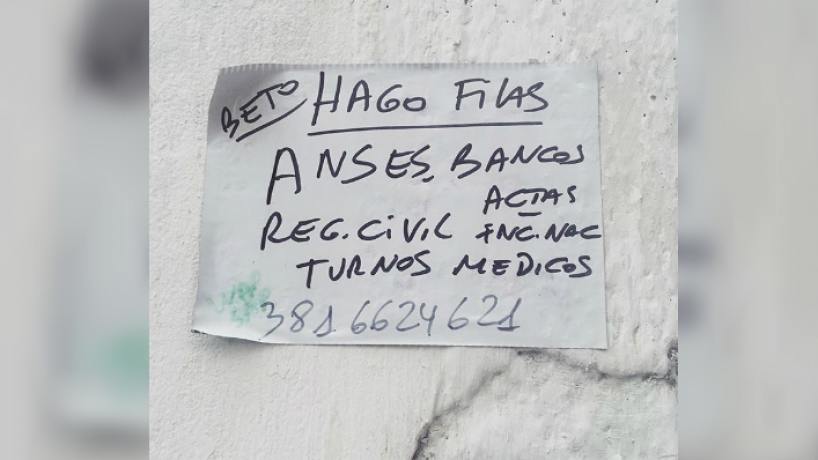 BETO HAGO FilAS
ANSES, BANCOS
ACTAS
REG. CiViL INC. NAC
TURNOS MEDICOS
381 6624621